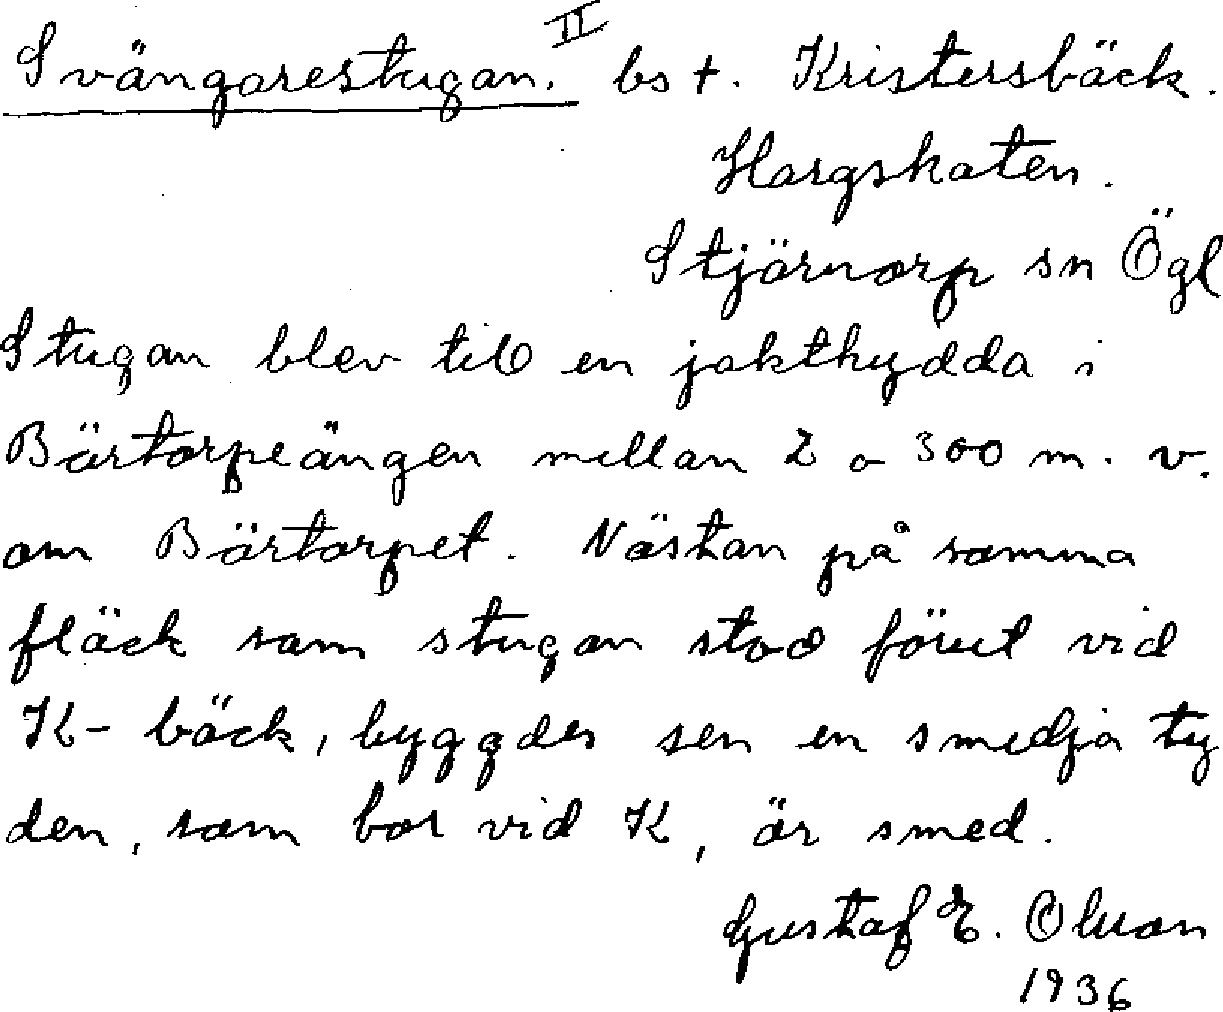 Svängarestugan. II bs t. Kristersbäck.
Hargskaten.
Stjärnorp sn Ögl
Stugan blev till en jakthydda i
Bärtorpeängen mellan 2 a 300 m. v.
om Bärtorpet. Nästan på samma
fläck som stugan stod förut vid
K-bäck, byggdes sen en smedja ty
den, som bor vid K, är smed.
Gustaf E. Olsson
1936